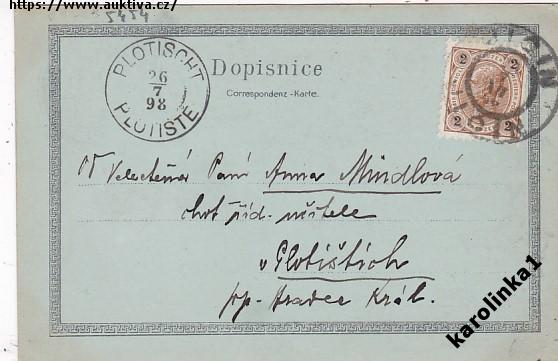 https://www.auktiva.cz/
5454
PLOTISCHT
26
7
98
PLOTIŠTĚ
Dopisnice
Correspondenz-Karte.
2 2
2 2
JIČIN
Velectěná Paní Anna Mindlová
choť říd. učitele
v Plotištích
pp. Hradec Král.
karolinka1